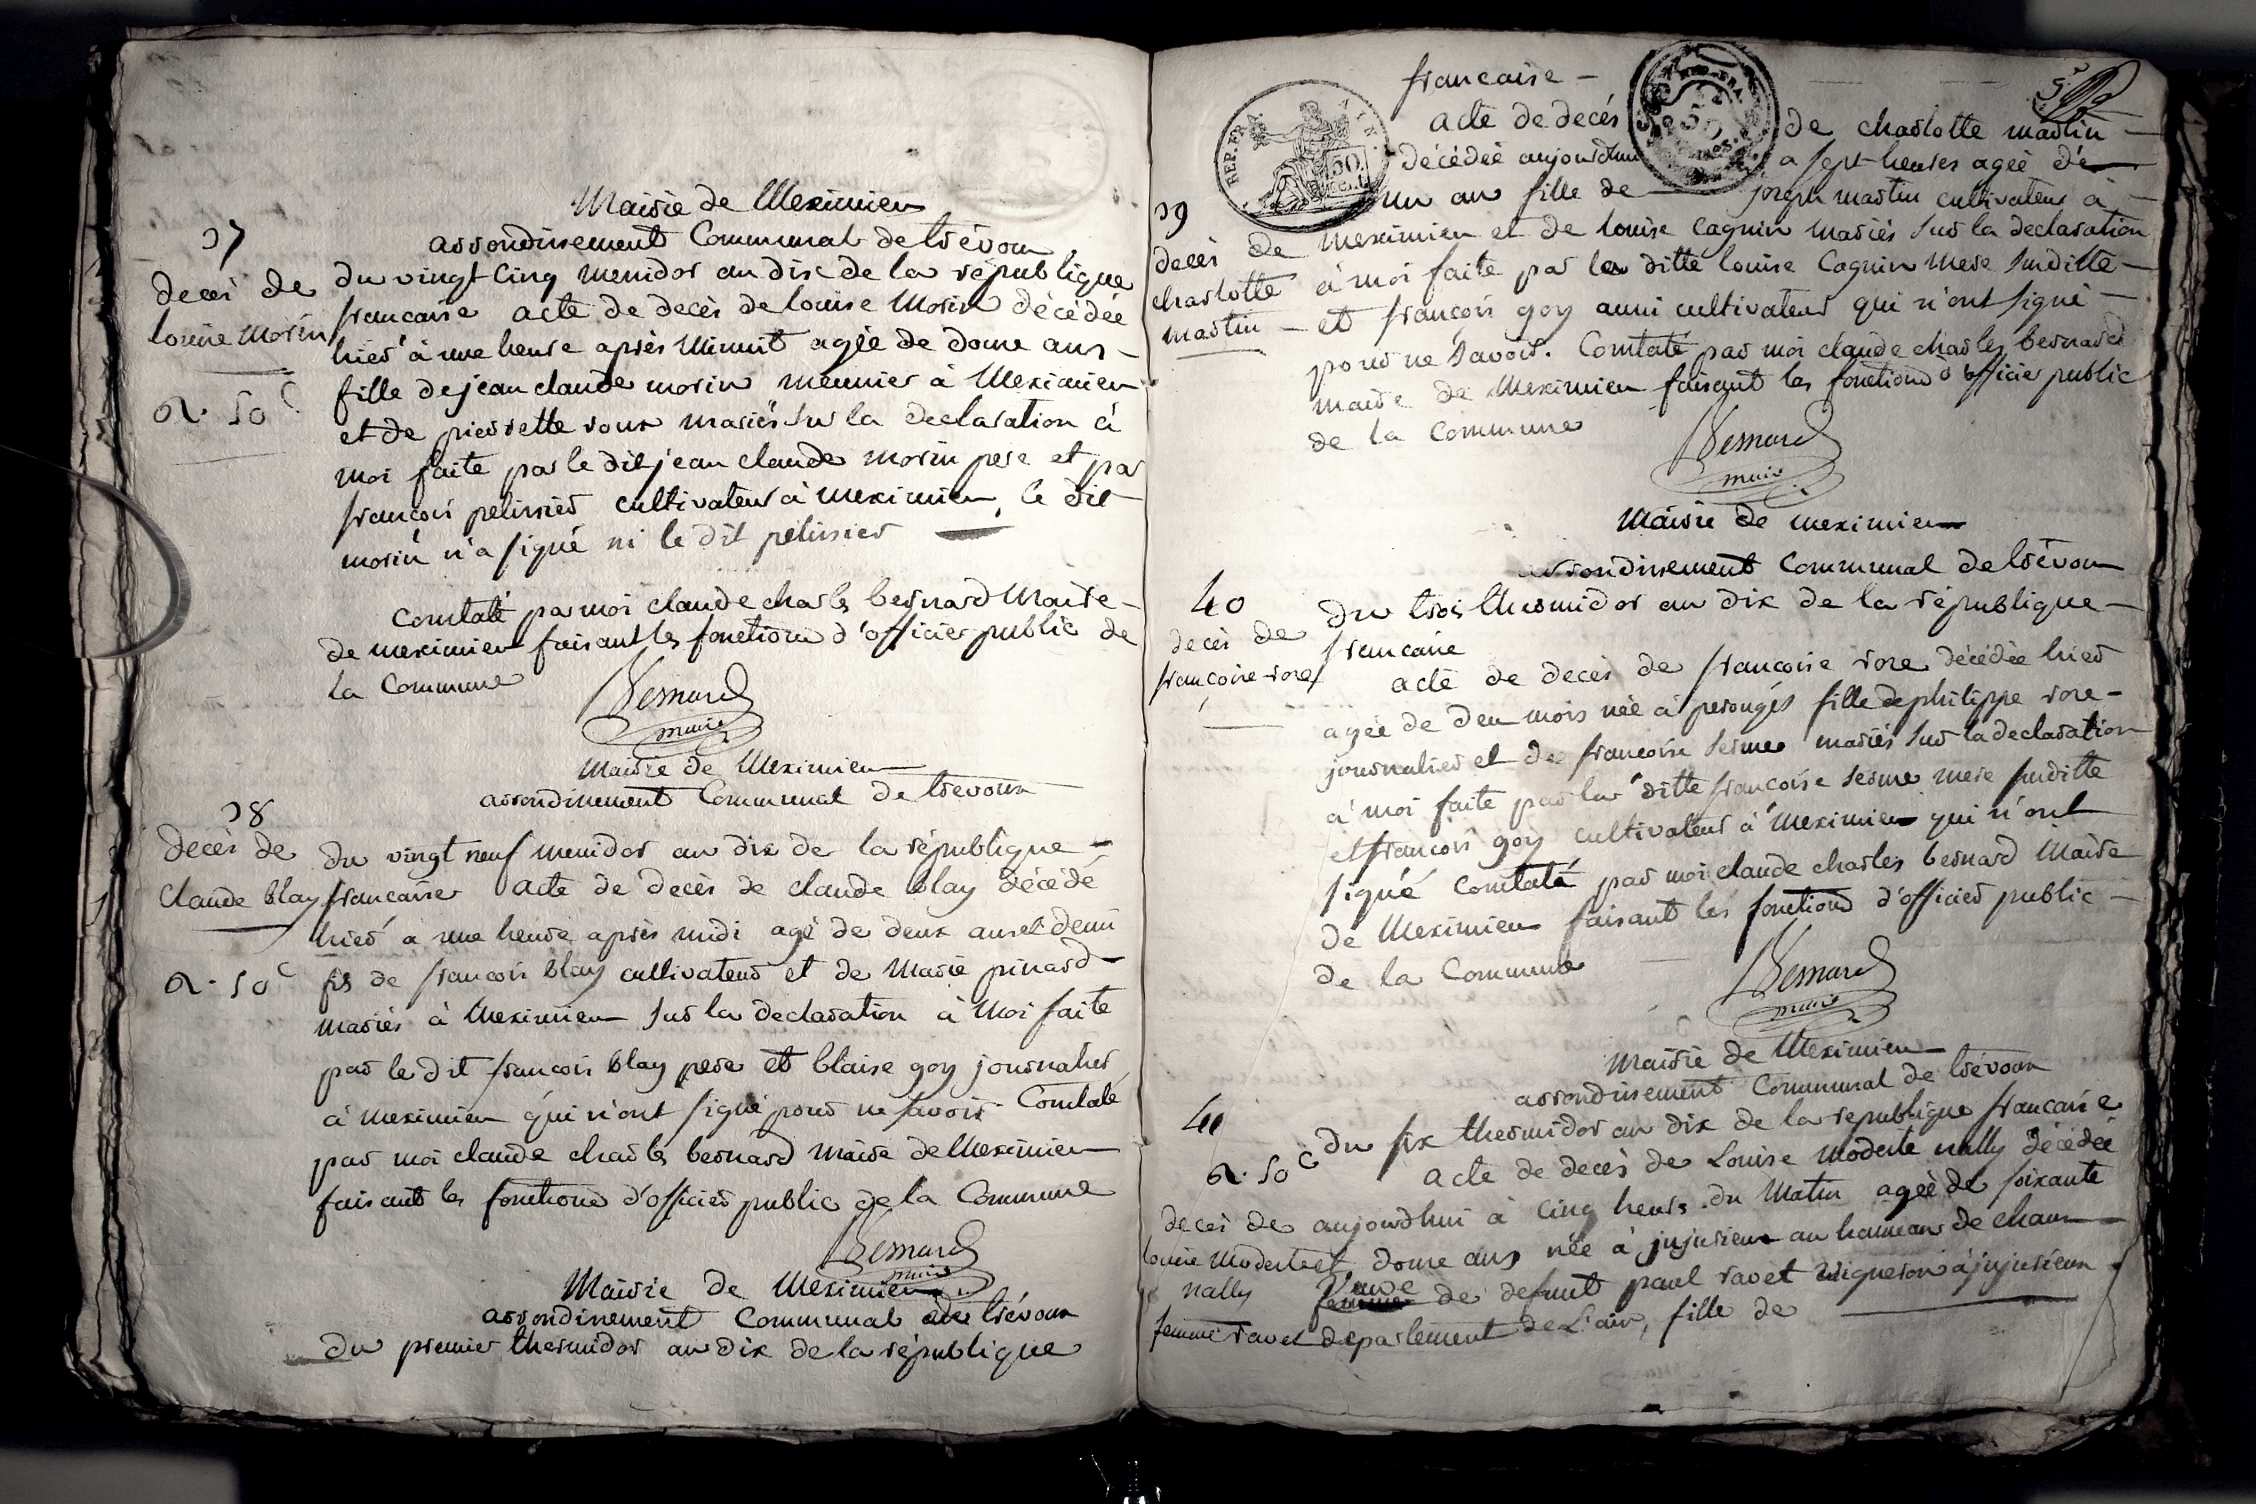 Mairie de Meximieu
arrondissement Communal de trévoux
37
du vingt cinq messidor an dix de la république
deces de
louise Morin
francaise acte de decès de louise Morin décédée
hier à une heure après Minuit agée de douze ans
fille de jean claude morin meunier à Meximieu
2. 50 c
et de pierrette roux mariés sur la declaration à
moi faite par le dit jean claude morin pere et par
françois pelissier cultivateur à meximieu, le dit
morin n'a signé ni le dit pelissier
Constaté par moi claude charles bernard Maire
de meximieu faisant les fonctions d'officier public de
la Commune
Bernard
maire
Mairie de Meximieu
arrondissement Communal de trevoux
38
decès de
claude blay
du vingt neuf messidor an dix de la république
francaise acte de decès de claude blay décédé
hier à une heure après midi agé de deux ans et demi
2. 50 c
fils de françois blay cultivateur et de Marie pinard
mariés à Meximieu sur la declaration à Moi faite
par le dit francois blay pere et blaise goy journalier
à meximieu qui n'ont signé pour ne savoir. Constaté
par moi claude charles bernard maire de Meximieu
faisant les fonctions d'officier public de la Commune
Bernard
maire
Mairie de Meximieu
arrondissement Communal de trévoux
du premier thermidor an dix de la république
francaise
REP. FRA.
50
acte de decés de charlotte martin
décédée aujourdhui a sept heures agée de
un an fille de joseph martin cultivateur à
39
deces de
charlotte
martin
meximieu et de louise cagnin mariés sur la declaration
à moi faite par la ditte louise Cagnin mere susditte
et françois goy aussi cultivateur qui n'ont signé
pour ne savoir. Constaté par moi claude charles bernard
maire de Meximieu faisant les fonctions d'officier public
de la Commune
Bernard
maire
Mairie de meximieu
arrondissement Communal de trévoux
40
decès de
françoise roze
du trois thermidor an dix de la république
francaise
acte de deces de françoise roze décédée hier
agée de deux mois née à perouges fille de philippe roze
journalier et de francoise serme mariés sur la declaration
à moi faite par la ditte françoise serme mere susditte
et françois goy cultivateur à Meximieu qui n'ont
signé Constaté par moi claude charles bernard Maire
de Meximieu faisant les fonctions d'officier public
de la Commune
Bernard
maire
Mairie de Meximieu
arrondissement Communal de trévoux
41
2. 50 c
du six thermidor an dix de la republique francaise
acte de decès de Louise modeste nally décédée
deces de
louise Modeste
nally
femme ravet
aujourdhui à cinq heures du Matin agée de soixante
et douze ans née à jujurieux au hameau de chaux
Veuve
femme de defunt paul ravet vigneron à jujurieux
departement de L'ain, fille de